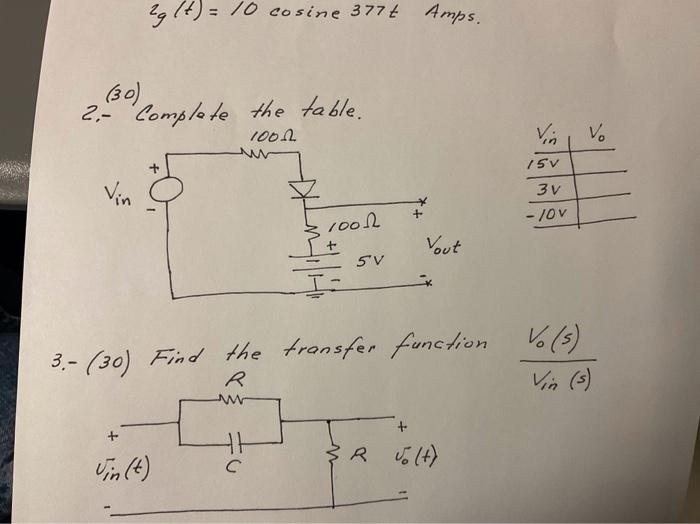 ig(t) = 10 cosine 377t Amps.
(30)
2.- Complete the table.
100Ω
Vin Vo
15V
3V
-10V
+
Vin
-
100Ω
+
5V
-
+
Vout
-
3.- (30) Find the transfer function Vo(s)
Vin(s)
R
C
+
vin(t)
-
R
+
vo(t)
-